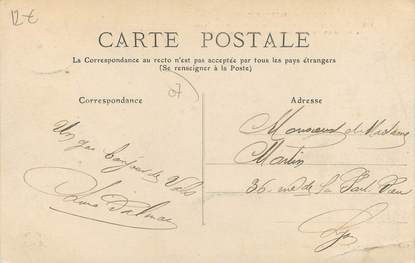 12€
CARTE POSTALE
La Correspondance au recto n'est pas acceptée par tous les pays étrangers
(Se renseigner à la Poste)
07
Correspondance
Adresse
Un
Monsieur et Madame
Martin
36 rue de la Part Dieu
Lyon